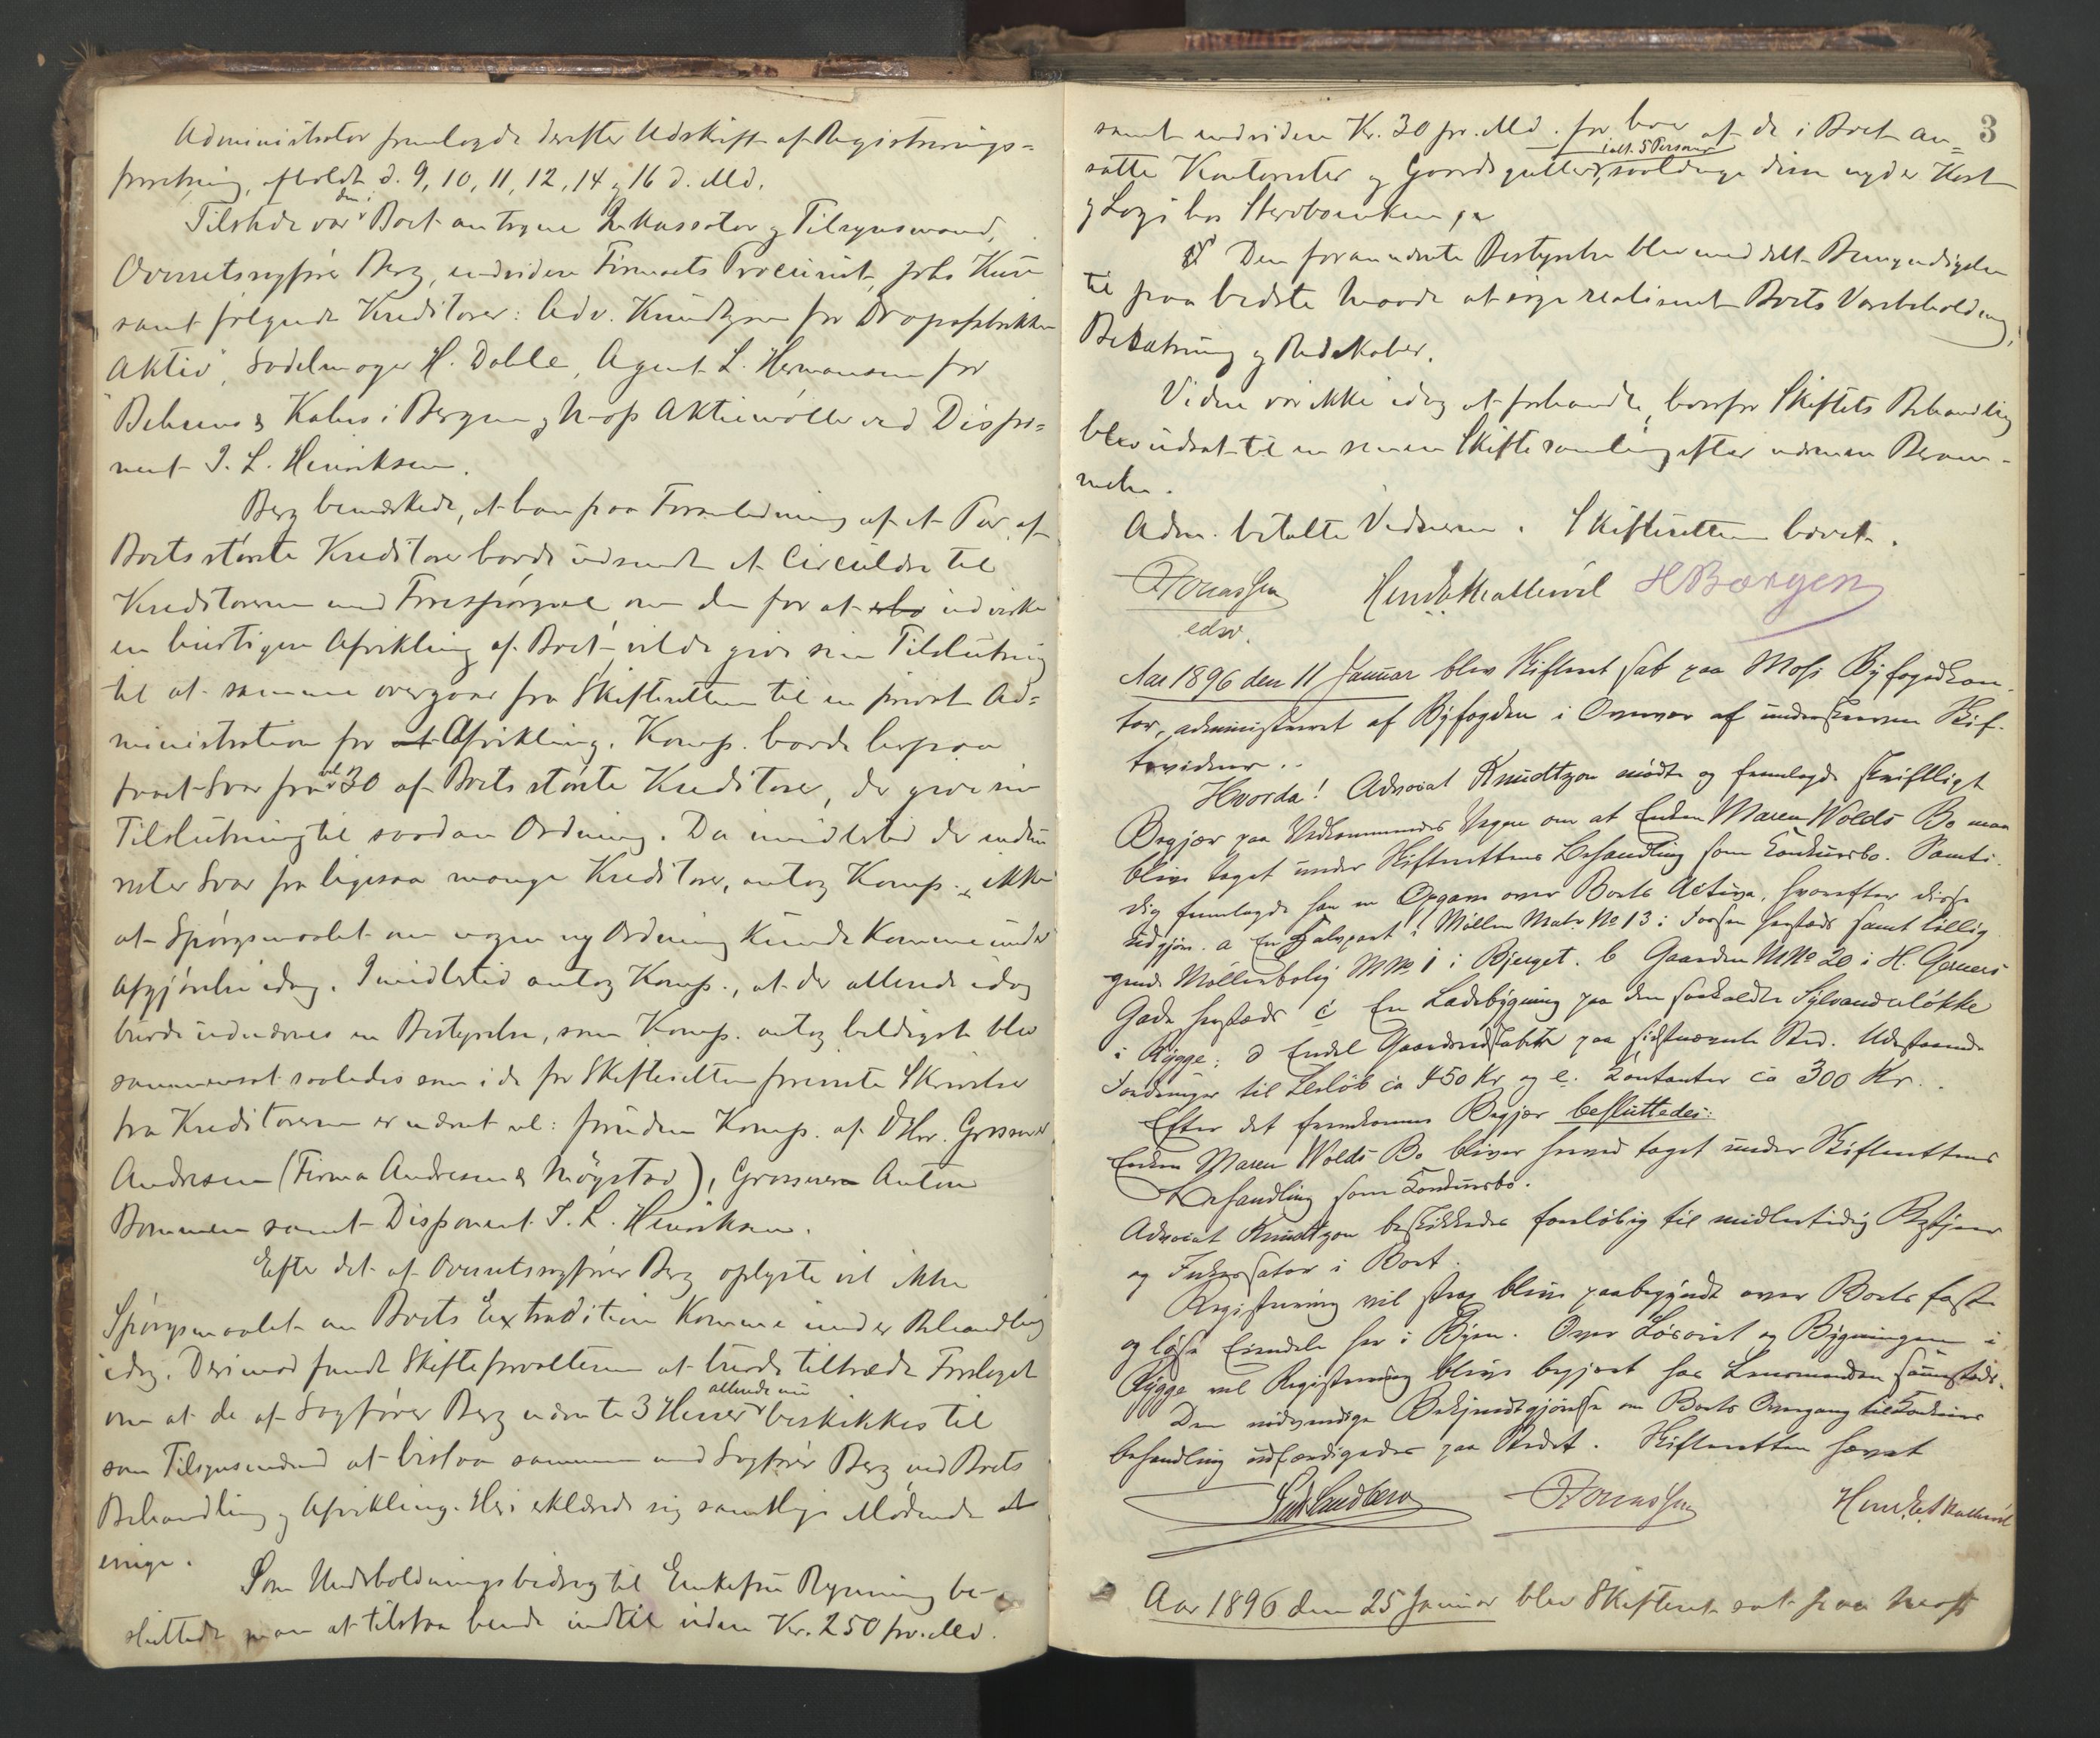 Administrator fremlagde derefter Udskrift af Registrerings-
forretning, afholdt d. 9, 10, 11, 12, 14 og 16 d. Md.
Tilstede var den i Boet antagne Inkassator og Tilsynsmand,
Overretssagfører Berg, endvidere Firmaets Procurist, Johs
samt følgende Kreditorer: Adv. Knudtzon for
Aktiv", Sadelmager H. Dahle, Agent L. Hermansen for
Behrens & Kahrs i Bergen og Moss Aktiemøller ved Dispo-
nent J. L. Henriksen.
Berg bemærkede, at han paa Foranledning af et Par af
Boets største Kreditorer havde udsendt et Circulære til
Kreditorerne med Forespørgsel, om de for at udvirke
en hurtigere Afvikling af Boet vilde give sin Tilslutning
til at samme overgaar fra Skifteretten til en privat Ad-
ministration for at Afvikling. Komp. havde herpaa
faaet Svar fra vel 30 af Boets største Kreditorer, der give sin
Tilslutning til saadan Ordning. Da imidlertid der endnu
rester Svar fra ligesaa mange Kreditorer, antog Komp. ikke
at Spørgsmaalet om nogen ny Ordning kunde komme under
Afgjørelse idag. Imidlertid antog Komp., at der allerede idag
burde udnævnes en Bestyrelse, som Komp. antog heldigst blev
sammensat saaledes som i de for Skifteretten foreviste Skrivelser
fra Kreditorerne er nævnt nl: foruden Komp. af DHrr. Grosserer
Andresen (Firma Andresen & Møystad), Grosserer Anton
Bommen samt Disponent J. L. Henriksen.
Efter det af Overretssagfører Berg oplyste vil ikke
Spørgsmaalet om Boets Extradition komme under Behandling
idag. Derimod fandt Skifteforvalteren at burde tiltræde Forslaget
om at de af Sagfører Berg nævnte 3 Herrer allerede nu beskikkes til
som Tilsynsmænd at bistaa sammen med Sagfører Berg ved Boets
Behandling og Afvikling. Heri erklærede sig samtlige Mødende at
enige.
Som Underholdningsbidrag til Enkefru Rynning be-
sluttede man at tilstaa hende indtil videre Kr. 250 pr. Md.
3
samt endvidere Kr. 30 pr. Md. for hver af de i Boet an-
satte Kontorister og Gaardsgutter, ialt 5 Personer, saalænge disse nyder Kost
og Logi hos Stervboenken
Den forannævnte Bestyrelse blev meddelt Bemyndigelse
til paa bedste Maade at søge realiseret Boets Varebeholdning,
Besætning og Redskaber.
Videre var ikke idag at forhandle, hvorfor Skiftets Behandling
blev udsat til en senere Skiftesamling efter nærmere Beram-
melse.
Adm. betalte Vidnerne. Skifteretten hævet.
Jonassen
edsv.
HBørgen
Aar 1896 den 11 Januar blev Skifteret sat paa Moss Byfogedkon-
tor, administreret af Byfogden i Overvær af underskrevne Skif-
tevidner..
Hvorda! Advocat Knudtzon mødte og fremlagde skriftligt
Begjær paa Vedkommendes Vegne om at Enken Maren Wolds Bo maa
blive taget under Skifterettens Behandling som Konkursbo. Samti-
dig fremlagde han en Opgave over Boets Activa, hvorefter disse
udgjør. a En Halvpart i Møllen Matr No 13 i Fossen herstæds samt tillig-
gende Møllerbolig MNo 1 i Bjerget. b Gaarden MNo 20 i H. Gerners
Gade herstæds c En Ladebygning paa den saakaldte Sylvandsløkke
i Rygge. d Endel Gaardsredskaber paa sidstnævnte Sted. Udestaaende
Fordringer til Beløb ca 450 Kr og e. Kontanter ca 300 Kr..
Efter det fremkomne Begjær besluttedes:
Enken Maren Wolds Bo bliver herved taget under Skifterettens
Behandling som Konkursbo.
Advocat Knudtzon beskikkedes foreløbig til midlertidig Bestyrer
og Inkassator i Boet.
Registrering vil strax blive paabegyndt over Boets faste
og løse Eiendele her i Byen. Over Løsøret og Bygningen i
Rygge vil Registrering blive begjært hos Lensmanden sammesteds.
Den nødvendige Bekjendtgjørelse om Boets Overgang til Konkurs
behandling udfærdigedes paa Stedet. Skifteretten hævet
Jonassen
Aar 1896 den 25 Januar blev Skifteret sat paa Moss